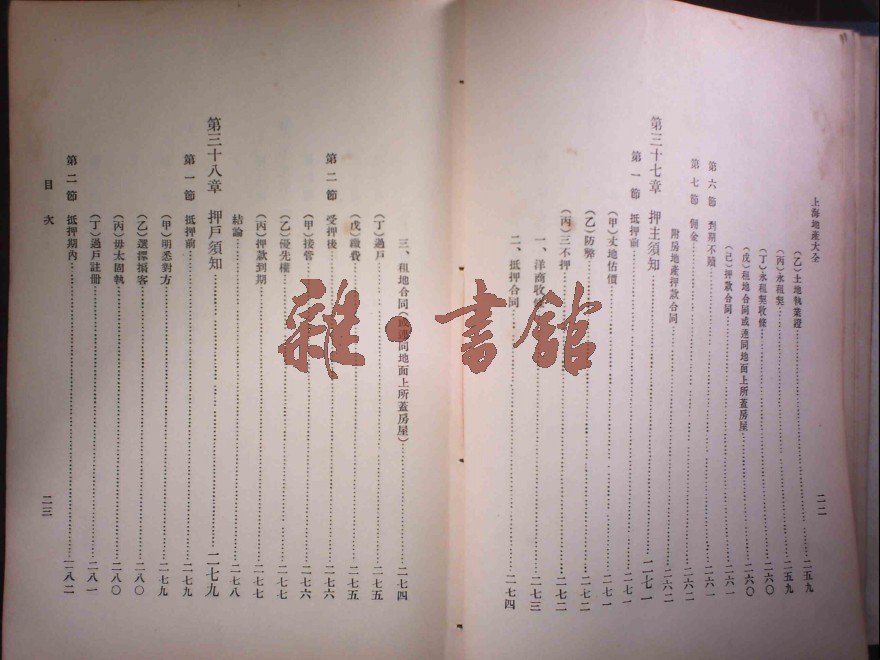 上海地產大全
二二
(乙)土地執業證……二五九
(丙)永租契……二五九
(丁)永租契收條……二六〇
(戊)租地合同或連同地面上所蓋房屋……二六〇
(己)押款合同……二六一
第六節 到期不贖……二六一
第七節 佣金……二六二
附房地產押款合同……二六二
第三十七章 押主須知……二七一
第一節 抵押前……二七一
(甲)丈地估價……二七一
(乙)防弊……二七二
(丙)三不押……二七二
一、洋商收條……二七三
二、抵押合同……二七四
三、租地合同(或連同地面上所蓋房屋)……二七四
(丁)過戶……二七五
(戊)繳費……二七五
第二節 受押後……二七六
(甲)接管……二七六
(乙)優先權……二七七
(丙)押款到期……二七七
結論……二七八
第三十八章 押戶須知……二七九
第一節 抵押前……二七九
(甲)明悉對方……二七九
(乙)選擇掮客……二八〇
(丙)毋太固執……二八〇
(丁)過戶註冊……二八一
第二節 抵押期內……二八二
目次
二三
雜·書館